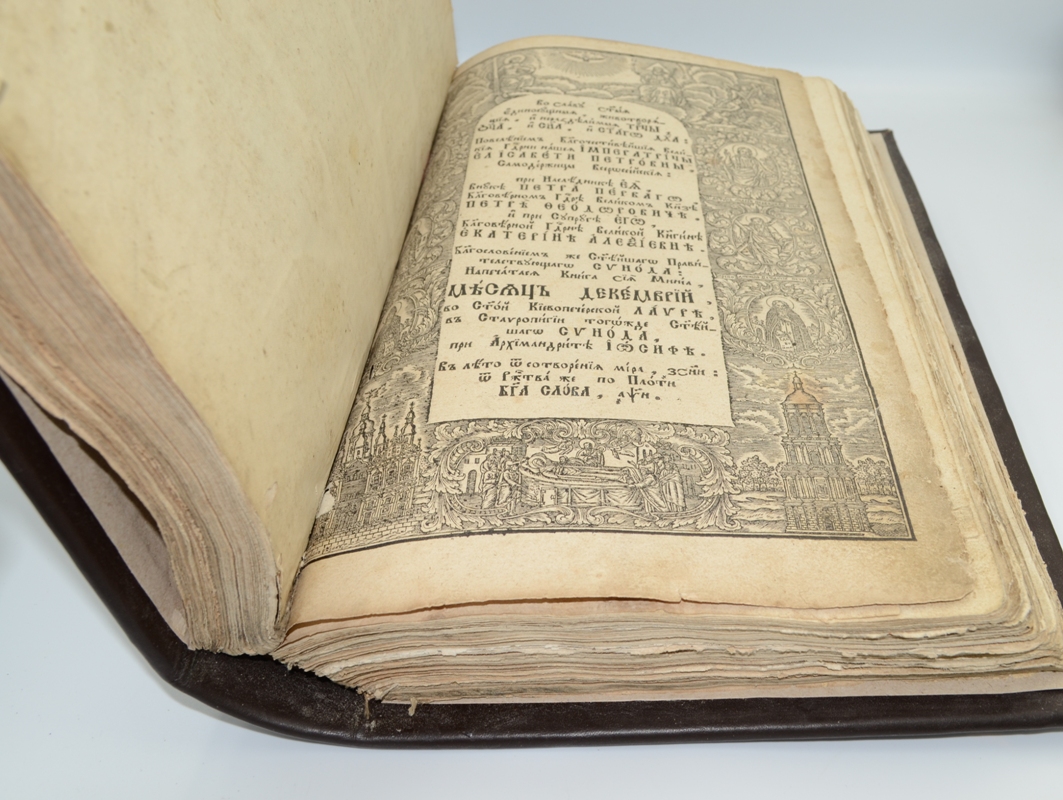 Во славу ст҃ыѧ
єдиносꙋщныѧ, животворѧ-
щїѧ, и҆ нераздѣлимыѧ ТРЦ҃Ы,
Ѻ҆Ц҃А, и҆ СН҃А, и҆ СТ҃АГѠ ДХ҃А:
Повелѣнїемъ Бл҃гочестивѣйшїѧ Вели-
кїѧ Гдⷭ҇рни нашеѧ ІМПЕРАТРІЦЫ
ЄЛІСАВЕТИ ПЕТРОВНЫ,
Самодержицы Всерѡссїйскїѧ:
при Наслѣдникѣ ЄѦ̀,
Внꙋкѣ ПЕТРА ПЕРВАГѠ
Бл҃говѣрномъ Гдⷭ҇рѣ Великомъ Кн҃зѣ
ПЕТРѢ ѲЕѺДѠРОВИЧѢ,
И҆ при Сꙋпрꙋгѣ ЄГѠ̀,
Бл҃говѣрной Гдⷭ҇рнѣ Великой Кнг҃инѣ
ЄКАТЕРІНѢ АЛЕѮІЕВНѢ.
Бл҃гословенїемъ же Ст҃ѣйшагѡ Прави-
телствꙋющагѡ СѴНОДА:
Напечатасѧ Книга сїѧ̀ Минїа,
МѢ́СѦЦЪ ДЕКЕ́МВРІЙ,
во Ст҃о́й Кїевопече́рской ЛАѴРѢ,
въ Ставропигїи тогѡ́жде Ст҃ѣ́й-
шагѡ СѴНОДА,
при А҆рхїмандри́тѣ ІѠ́СИФѢ.
Въ лѣ́то ѿ сотворе́нїѧ мі́ра, ҂зс҃ни:
ѿ Рж҃тва̀ же по Пло́ти
БГ҃А СЛО́ВА, ҂аѱ҃н.